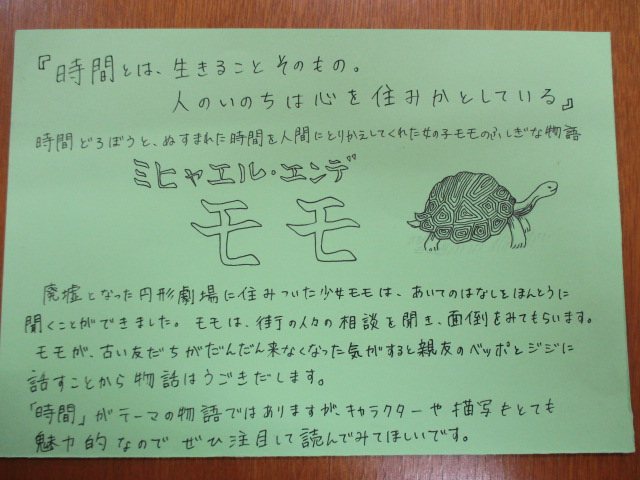 『時間とは、生きることそのもの。
人のいのちは心を住みかとしている』
時間どろぼうと、ぬすまれた時間を人間にとりかえしてくれた女の子モモのふしぎな物語
ミヒャエル・エンデ
モモ
廃墟となった円形劇場に住みついた少女モモは、あいてのはなしをほんとうに
聞くことができました。モモは、街の人々の相談を聞き、面倒をみてもらいます。
モモが、古い友だちがだんだん来なくなった気がすると親友のベッポとジジに
話すことから物語はうごきだします。
「時間」がテーマの物語ではありますが、キャラクターや描写もとても
魅力的なのでぜひ注目して読んでみてほしいです。